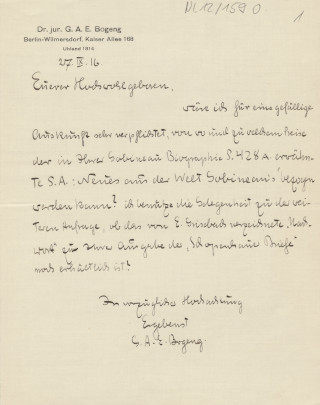 NL 12/159 0
1
Dr. jur. G. A. E. Bogeng
Berlin-Wilmersdorf, Kaiser Allee 168
Uhland 1814
27. IX. 16.
Euerer Hochwohlgeboren,
wäre ich für eine gefällige
Auskunft sehr verpflichtet, von wo und zu welchem Preise
der in Ihrer Gobineau Biographie S. 428 A erwähn-
te S. A.: Neues aus der Welt Gobineau's bezogen
werden kann? Ich benutze die Gelegenheit zu der wei-
teren Anfrage, ob das von E. Grisebach verzeichnete „Nach-
wort" zu Ihrer Ausgabe der „Schopenhauer Briefe"
noch erhältlich ist?
In vorzüglicher Hochachtung
Ergebenst
G. A. E. Bogeng.